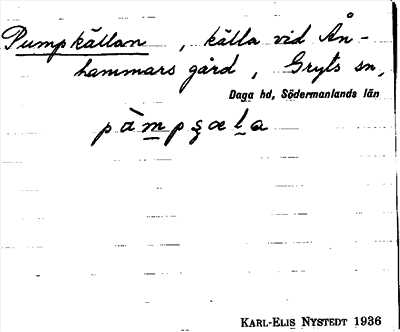 Pumpkällan , källa vid Ån-
hammars gård , Gryts sn,
Daga hd, Södermanlands län
KARL-ELIS NYSTEDT 1936